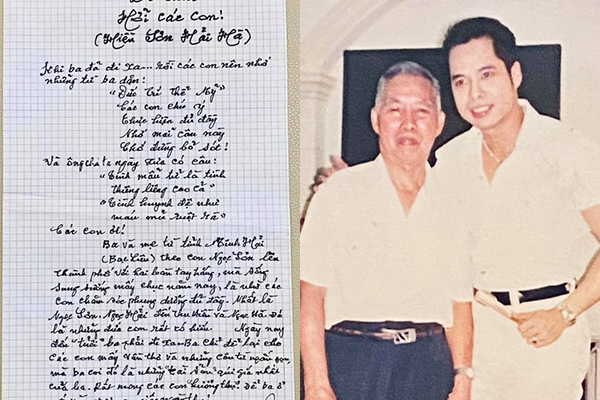 Hỡi các con!
(Hiền Sơn Hải Hà)
Khi ba đã đi xa... rồi các con nên nhớ
những từ ba dặn:
"Đức Trí Thể Mỹ"
Các con chú ý
Thực hiện đủ đầy
Nhớ mãi câu này
Chớ đừng bỏ sót!
Và ông cha ta ngày xưa có câu:
"Tình mẫu tử là tình
thiêng liêng cao cả"
"Tình huynh đệ như
máu mủ ruột rà"
Các con ơi!
Ba và mẹ từ tỉnh Minh Hải
(Bạc Liêu) theo con Ngọc Sơn lên
thành phố với hai bàn tay trắng, mà sống
sung sướng mấy chục năm nay, là nhờ các
con chăm sóc phụng dưỡng đủ đầy. Nhất là
Ngọc Sơn, Ngọc Hải và Ngọc Hà. Đó
là những đứa con rất có hiếu. Ngày nay
đến tuổi ba phải đi xa. Ba chỉ để lại cho
các con mấy vần thơ và những câu từ ngắn gọn,
mà ba coi đó là những tài sản quí giá nhất
của ba. Rất mong các con để ba ở